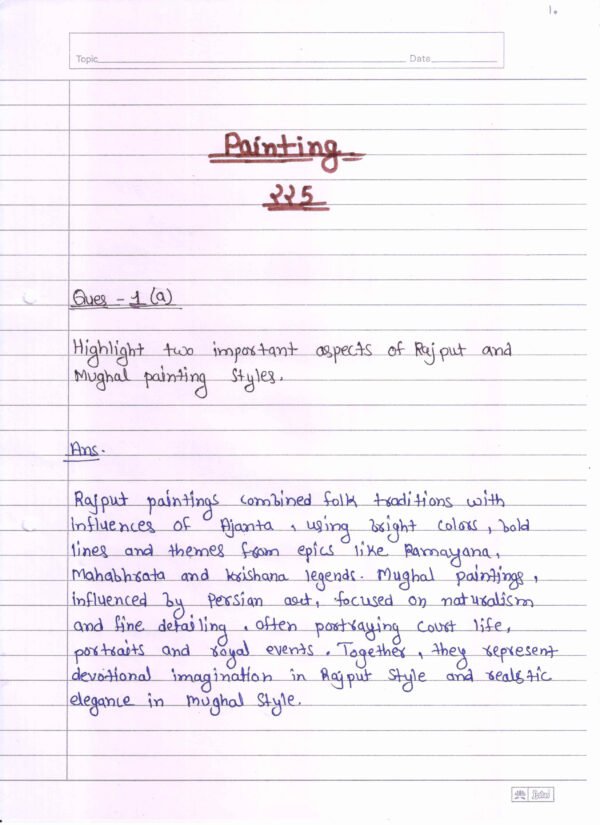 1.
Topic Date
Painting
225
Ques - 1 (a)
Highlight two important aspects of Rajput and
Mughal painting Styles.
Ans.
Rajput paintings combined folk traditions with
influences of Ajanta , using bright colors , bold
lines and themes from epics like Ramayana,
Mahabhrata and krishana legends. Mughal paintings ,
influenced by Persian art, focused on naturalism
and fine detailing . often portraying court life,
portraits and royal events . Together , they represent
devotional imagination in Rajput Style and realstic
elegance in mughal Style.